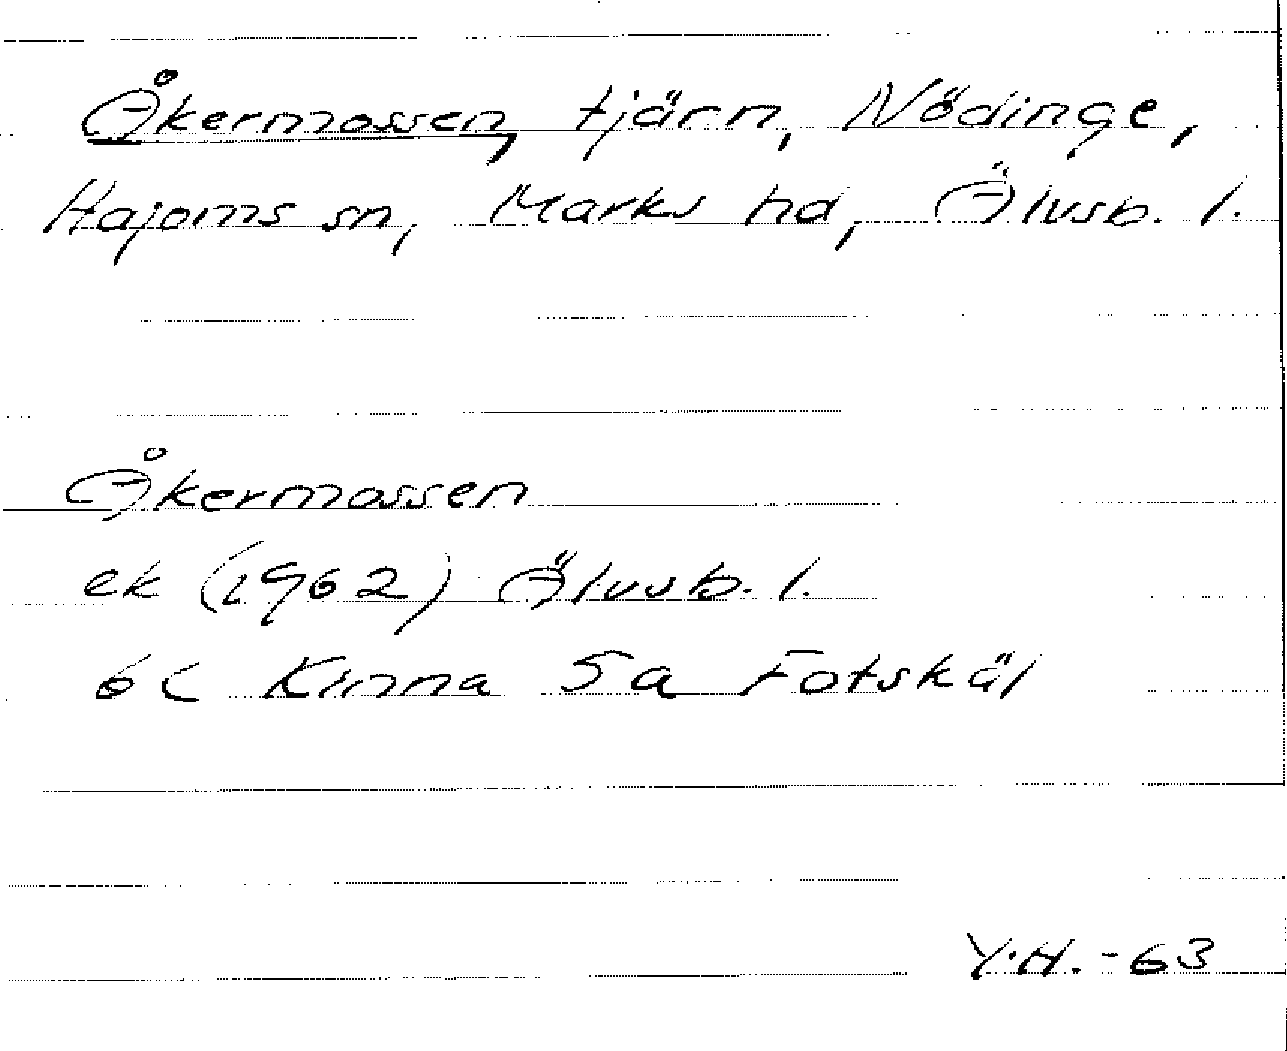 Åkermossen, tjärn, Nödinge,
Hajoms sn, Marks hd, Älvsb. l.
Åkermossen
ek (1962) Älvsb. l.
6C Kinna 5a Fotskäl
Y.H. -63